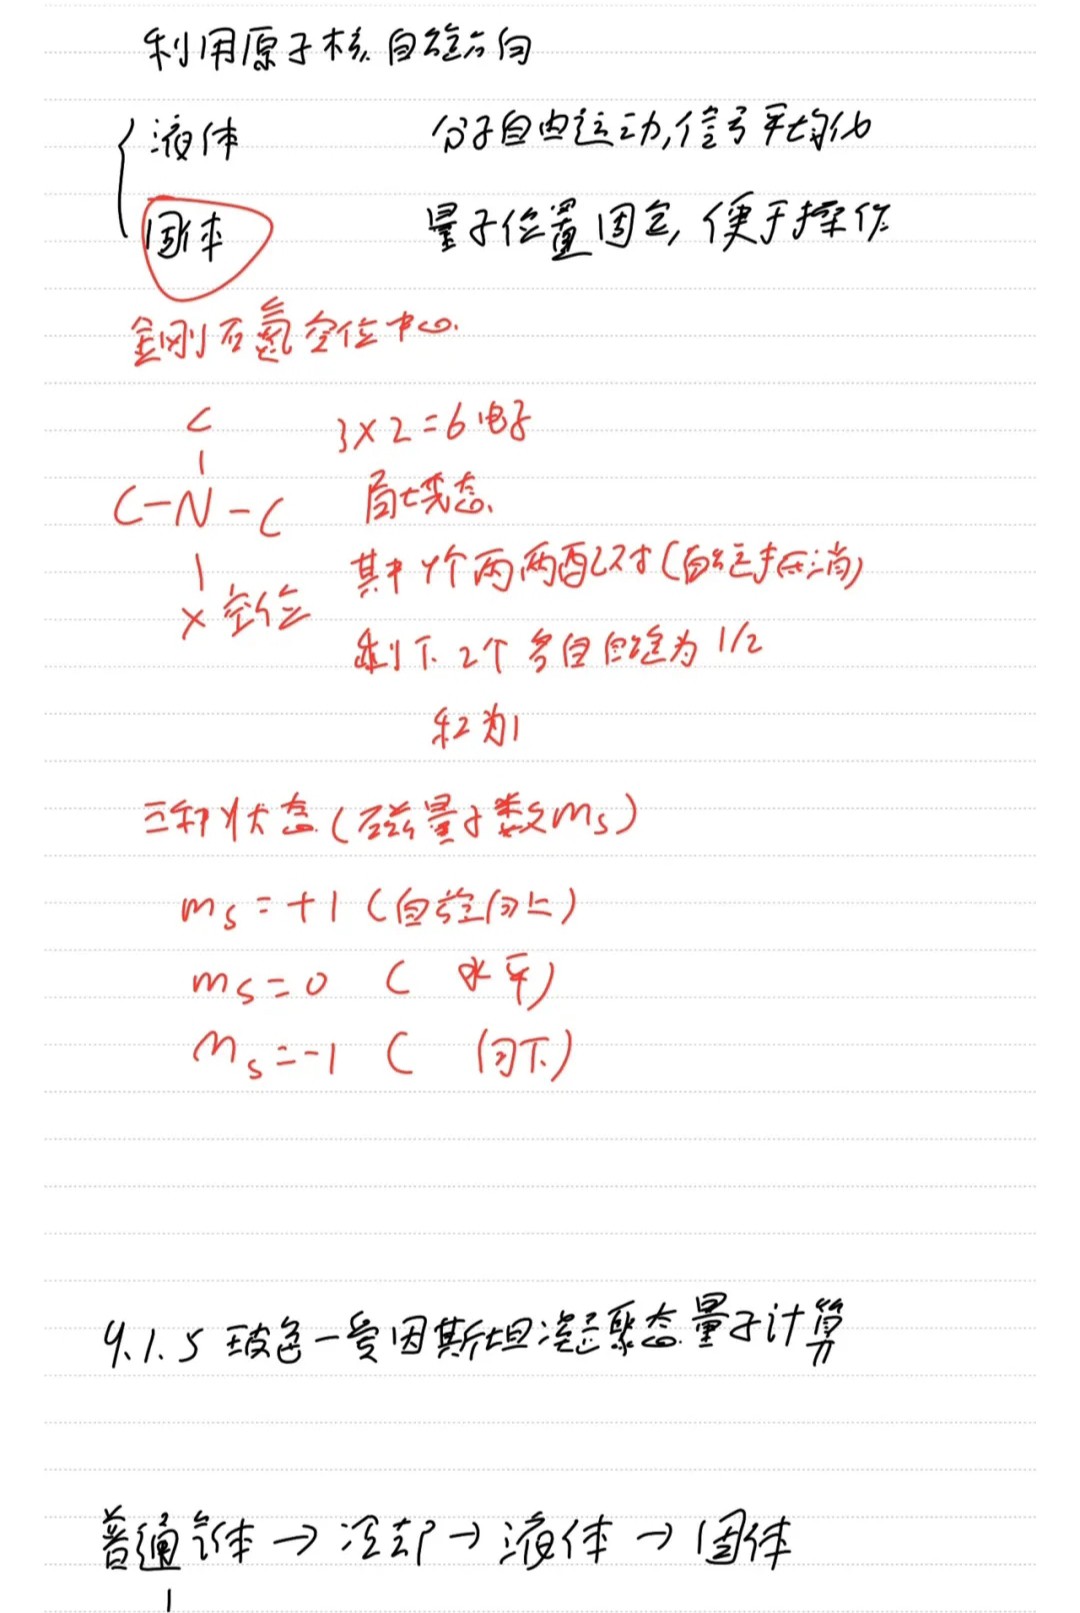 利用原子核自旋方向
液体 分子自由运动,信号平均化
固体 量子位置固定,便于操作
金刚石氮空位中心.
C
3×2=6电子
C-N-C
局域态.
其中4个两两配对(自旋抵消)
X 空位
剩下2个各自自旋为1/2
和为1
三种状态(磁量子数ms)
ms=+1(自旋向上)
ms=0 ( 水平)
ms=-1 ( 向下)
4.1.5 玻色-爱因斯坦凝聚态量子计算
普通气体→冷却→液体→固体